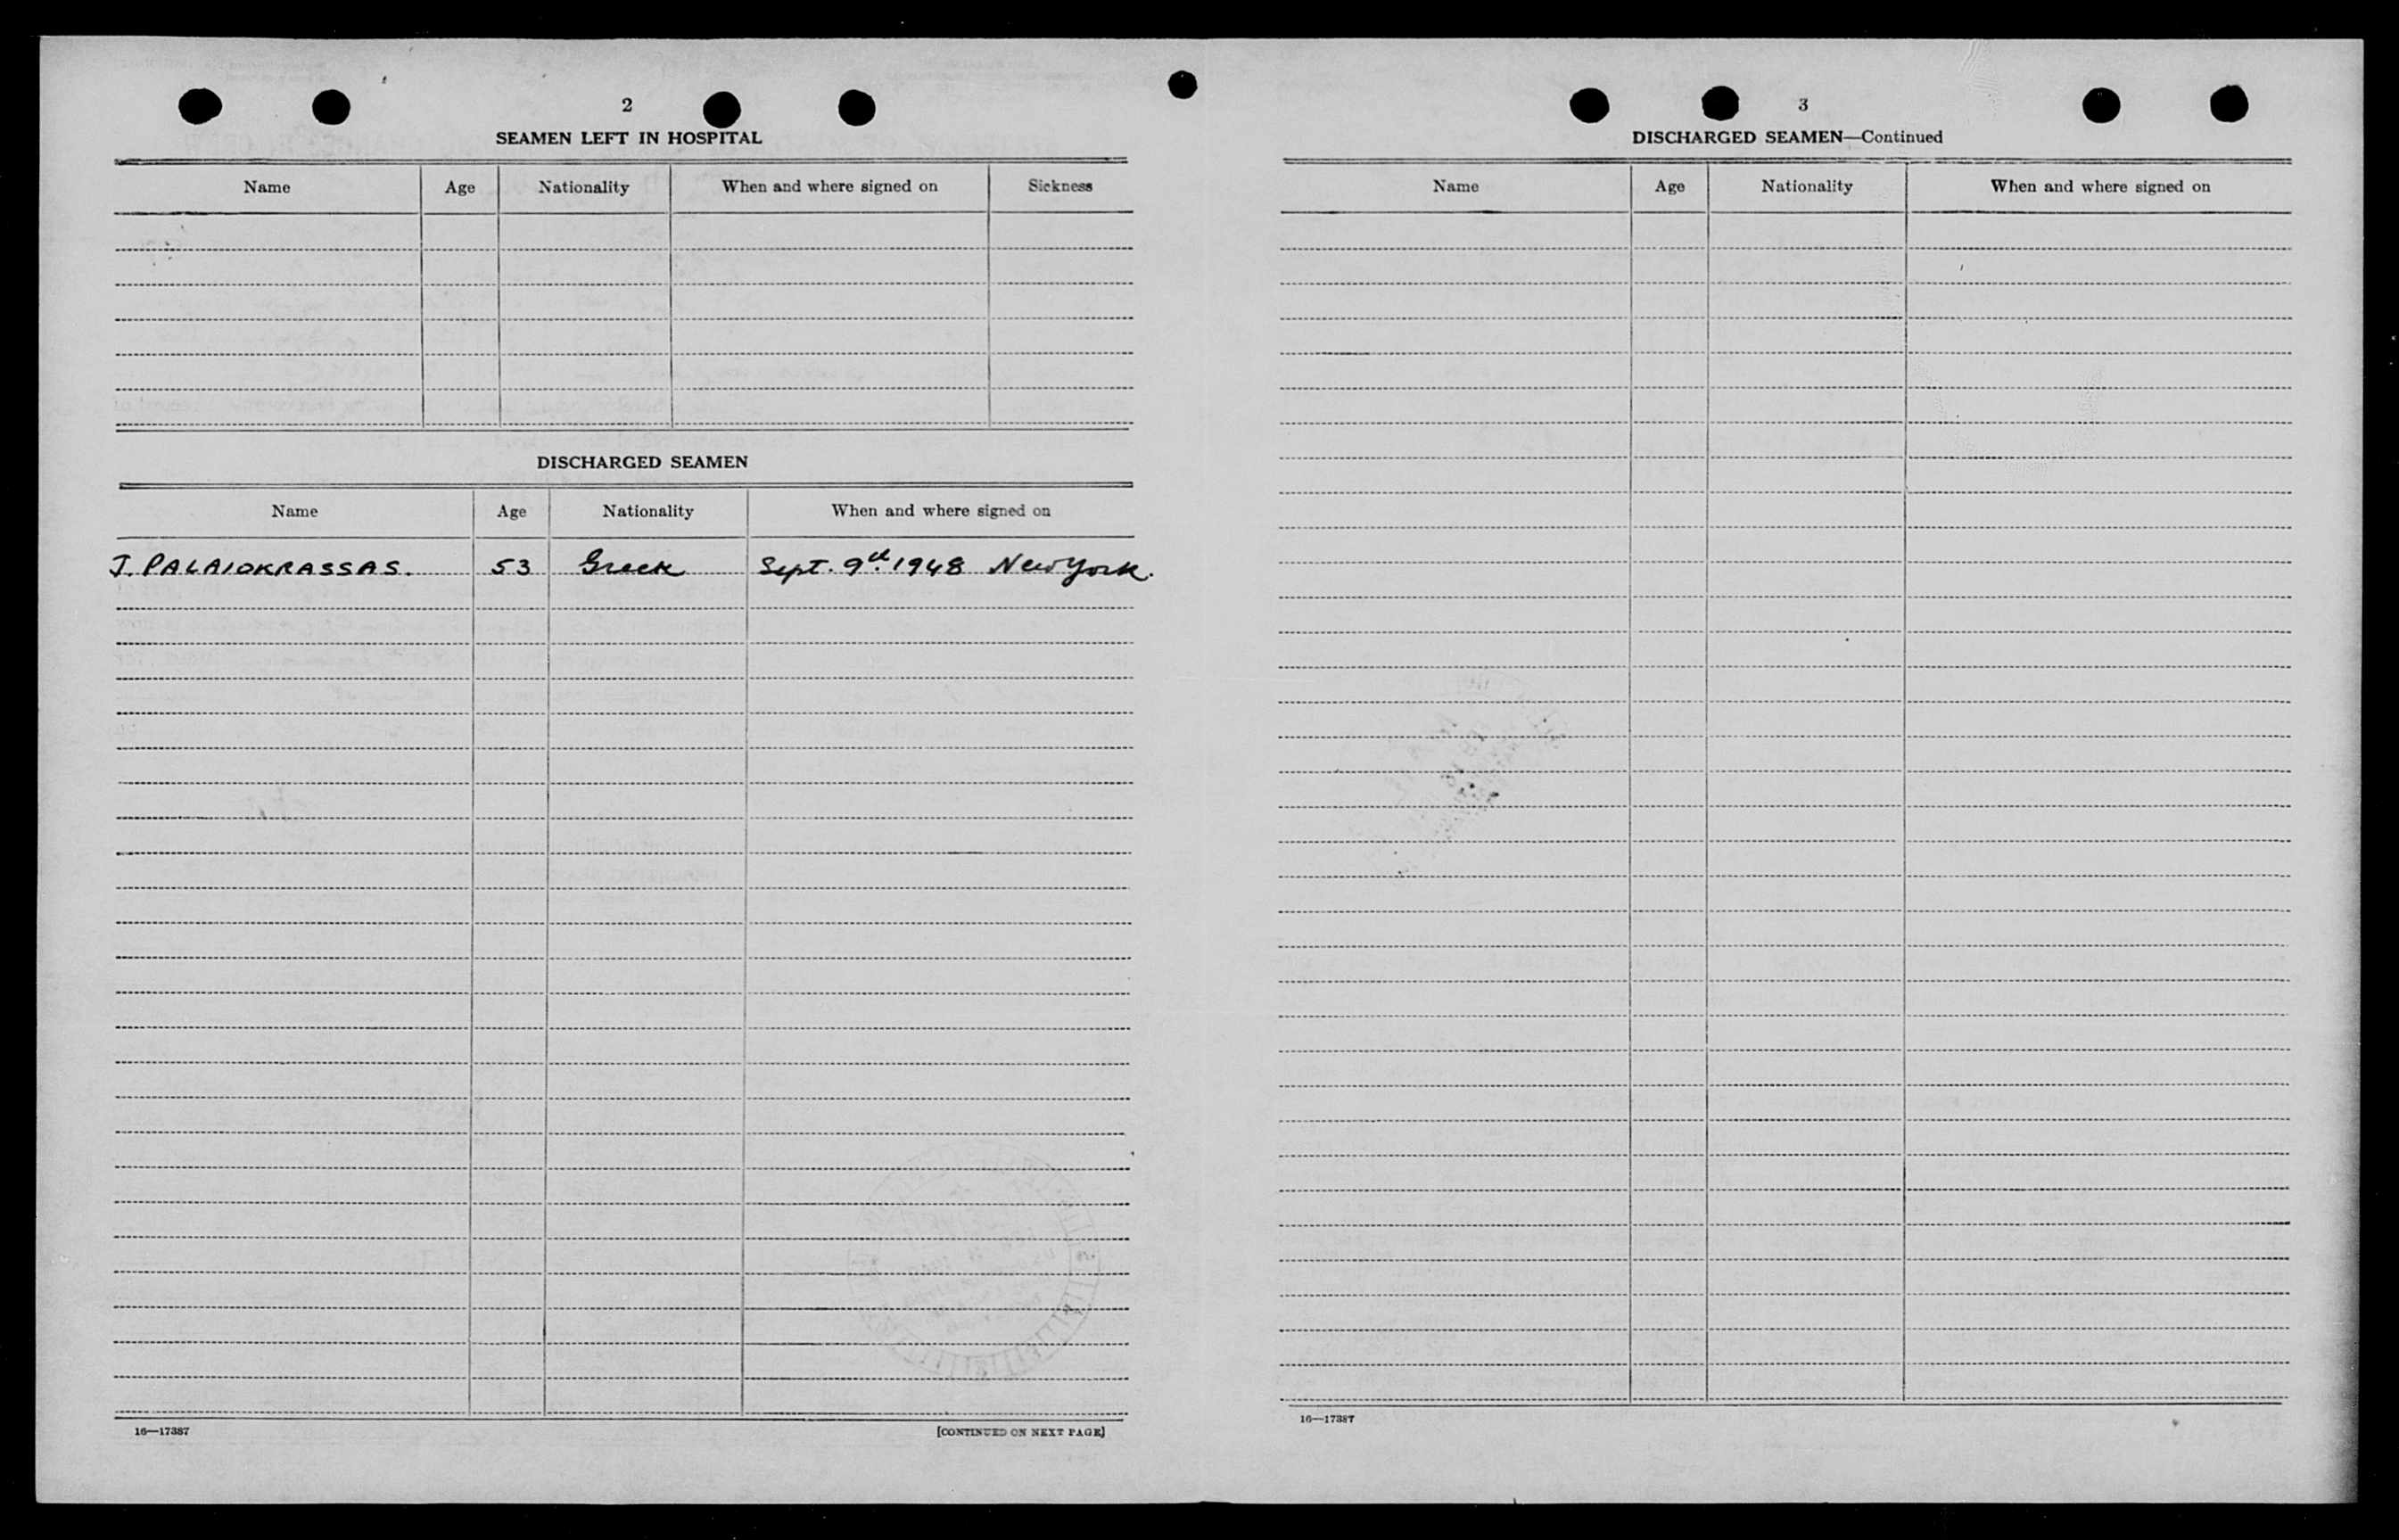 2
SEAMEN LEFT IN HOSPITAL
Name Age Nationality When and where signed on Sickness
DISCHARGED SEAMEN
Name Age Nationality When and where signed on
J. PALAIOKRASSAS. 53 Greek Sept. 9th 1948 New York.
16—17387 [CONTINUED ON NEXT PAGE]
3
DISCHARGED SEAMEN—Continued
Name Age Nationality When and where signed on
16—17387